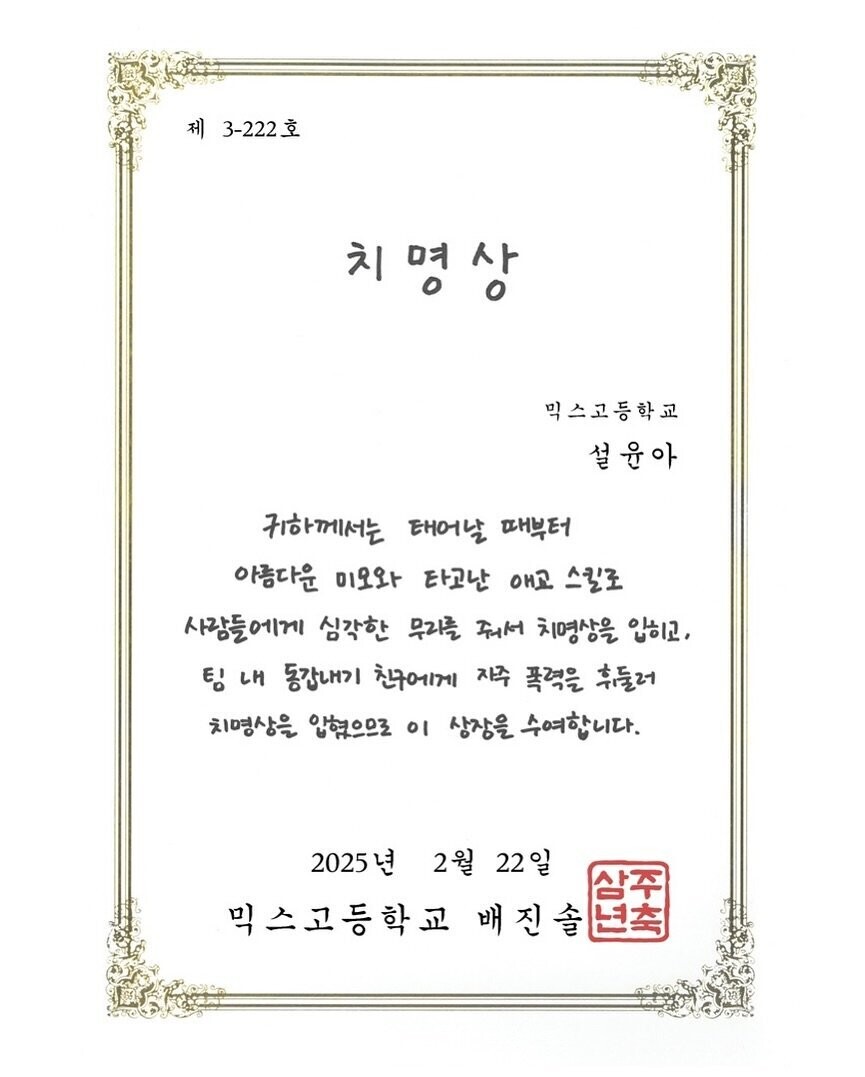 제 3-222호
치명상
믹스고등학교
설윤아
귀하께서는 태어날 때부터
아름다운 미모와 타고난 애교 스킬로
사람들에게 심각한 무리를 줘서 치명상을 입히고,
팀 내 동갑내기 친구에게 자주 폭력을 휘둘러
치명상을 입혔으므로 이 상장을 수여합니다.
2025년 2월 22일
믹스고등학교 배진솔
삼주
년축